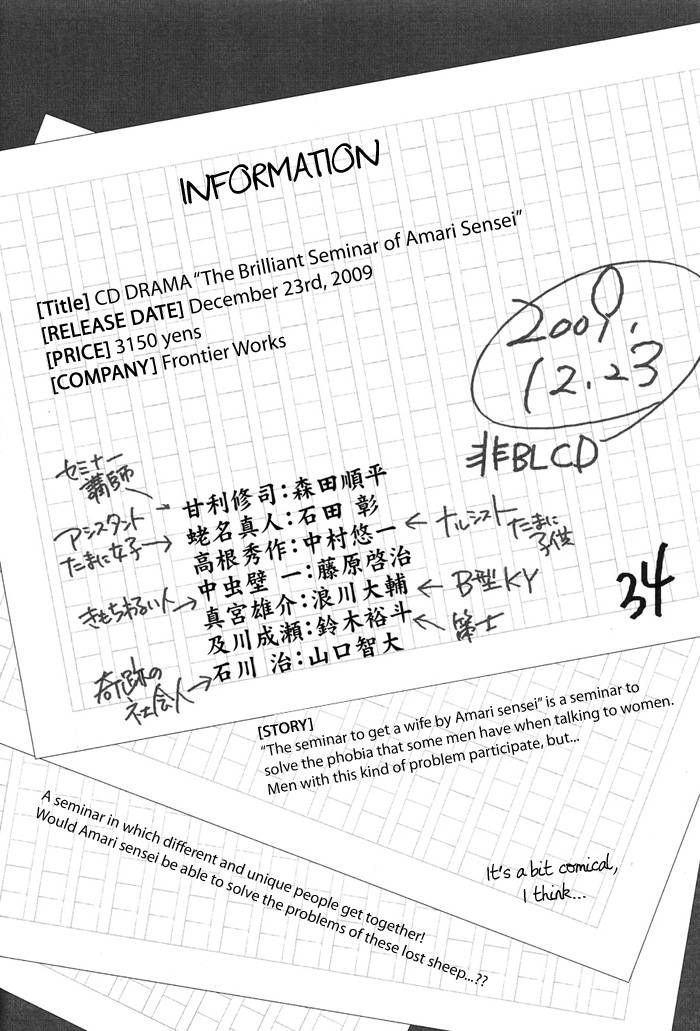 INFORMATION
[Title] CD DRAMA “The Brilliant Seminar of Amari Sensei”
[RELEASE DATE] December 23rd, 2009
[PRICE] 3150 yens
[COMPANY] Frontier Works
2009.
12.23
非BLCD
セミナー
講師
アシスタント
たまに女子→
きもちわるい人→
奇跡の
社会人→
甘利修司:森田順平
蛯名真人:石田 彰
高根秀作:中村悠一
中虫壁 一:藤原啓治
真宮雄介:浪川大輔
及川成瀬:鈴木裕斗
石川 治:山口智大
←ナルシスト
たまに
子供
←B型KY
←策士
34
[STORY]
“The seminar to get a wife by Amari sensei” is a seminar to
solve the phobia that some men have when talking to women.
Men with this kind of problem participate, but...
A seminar in which different and unique people get together!
Would Amari sensei be able to solve the problems of these lost sheep...??
It's a bit comical,
I think...